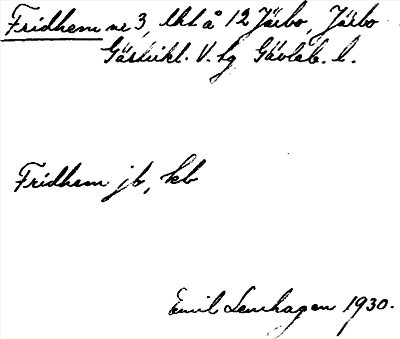 Fridhem nr 3, lht å 12 Järbo, Järbo
Gästrikl. V. tg Gävleb. l.
Fridhem jb, kb
Emil Lenhagen 1930.